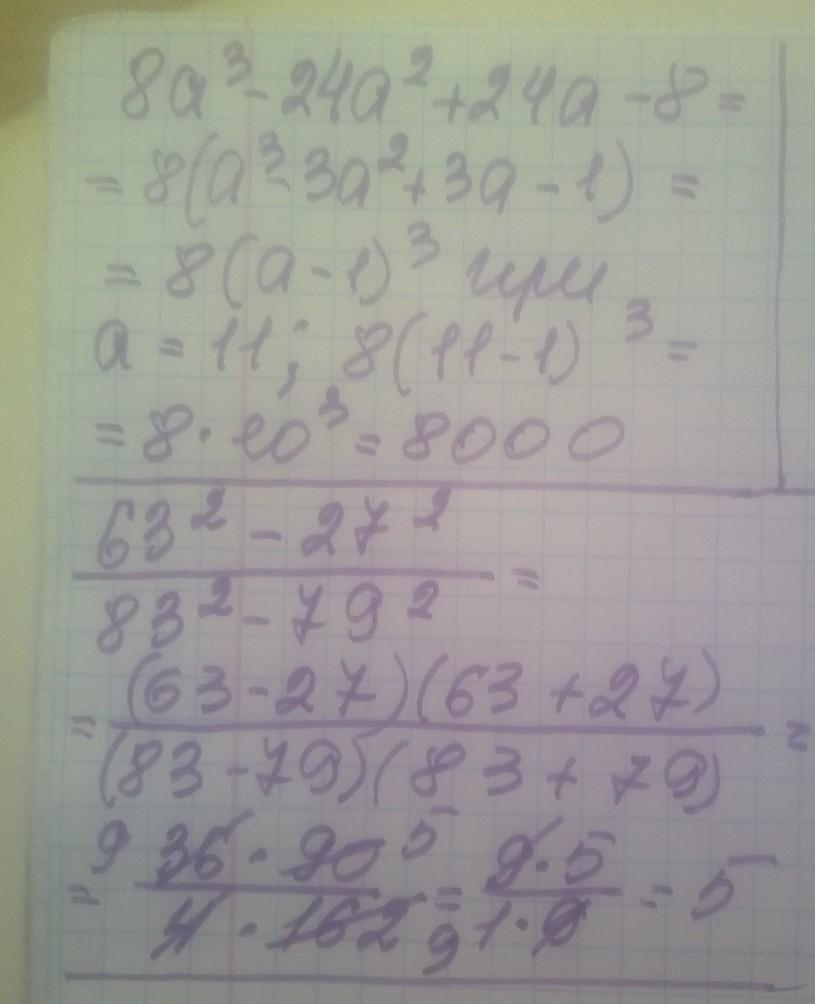 8a³ - 24a² + 24a - 8 =
= 8(a³ - 3a² + 3a - 1) =
= 8(a - 1)³ при
a = 11; 8(11 - 1)³ =
= 8 · 10³ = 8000
63² - 27²
83² - 79² =
= (63 - 27)(63 + 27)
(83 - 79)(83 + 79) =
= 9 36 · 90 5 = 9 · 5 = 5
4 · 162 9 1 · 9